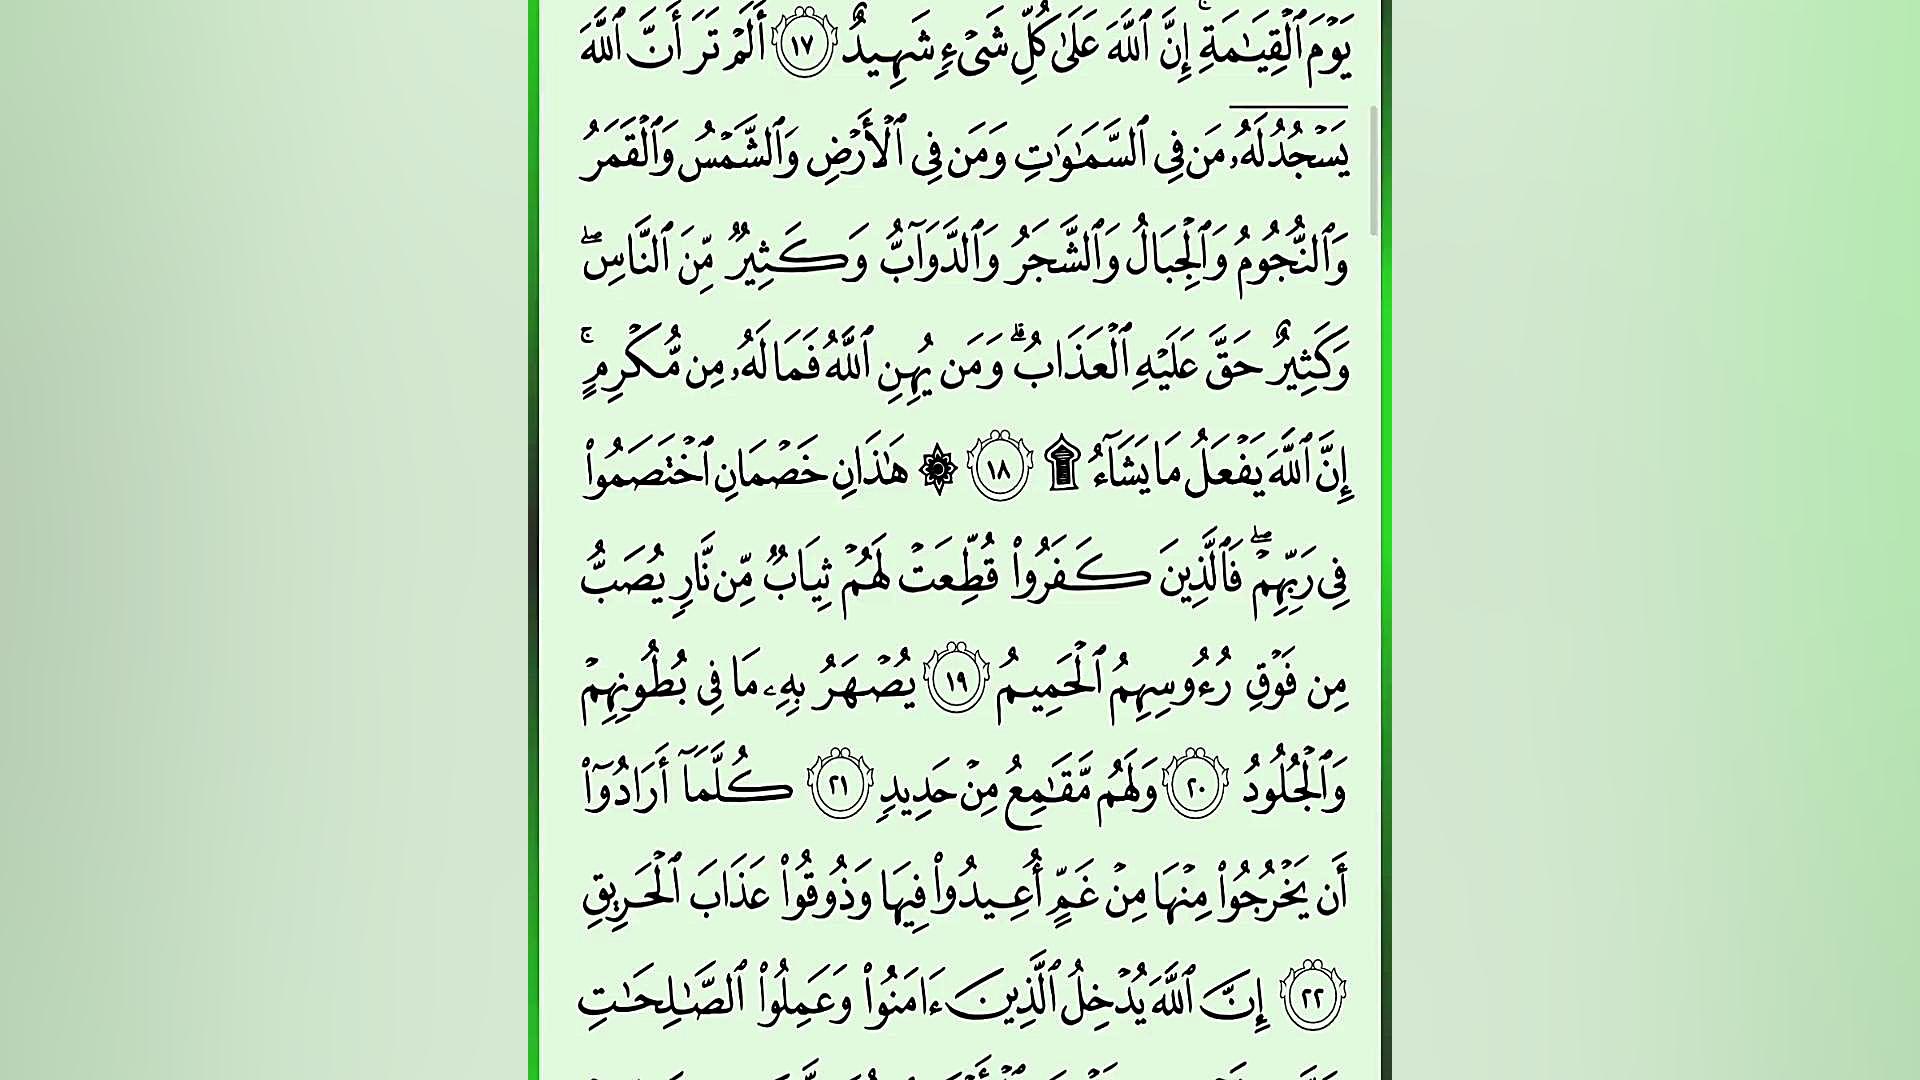 يَوْمَ ٱلْقِيَـٰمَةِ ۚ إِنَّ ٱللَّهَ عَلَىٰ كُلِّ شَىْءٍ شَهِيدٌ ١٧ أَلَمْ تَرَ أَنَّ ٱللَّهَ
يَسْجُدُ لَهُۥ مَن فِى ٱلسَّمَـٰوَٰتِ وَمَن فِى ٱلْأَرْضِ وَٱلشَّمْسُ وَٱلْقَمَرُ
وَٱلنُّجُومُ وَٱلْجِبَالُ وَٱلشَّجَرُ وَٱلدَّوَآبُّ وَكَثِيرٌ مِّنَ ٱلنَّاسِ ۖ
وَكَثِيرٌ حَقَّ عَلَيْهِ ٱلْعَذَابُ ۗ وَمَن يُهِنِ ٱللَّهُ فَمَا لَهُۥ مِن مُّكْرِمٍ ۚ
إِنَّ ٱللَّهَ يَفْعَلُ مَا يَشَآءُ ۩ ١٨ ۞ هَـٰذَانِ خَصْمَانِ ٱخْتَصَمُوا۟
فِى رَبِّهِمْ ۖ فَٱلَّذِينَ كَفَرُوا۟ قُطِّعَتْ لَهُمْ ثِيَابٌ مِّن نَّارٍ يُصَبُّ
مِن فَوْقِ رُءُوسِهِمُ ٱلْحَمِيمُ ١٩ يُصْهَرُ بِهِۦ مَا فِى بُطُونِهِمْ
وَٱلْجُلُودُ ٢٠ وَلَهُم مَّقَـٰمِعُ مِنْ حَدِيدٍ ٢١ كُلَّمَآ أَرَادُوٓا۟
أَن يَخْرُجُوا۟ مِنْهَا مِنْ غَمٍّ أُعِيدُوا۟ فِيهَا وَذُوقُوا۟ عَذَابَ ٱلْحَرِيقِ
٢٢ إِنَّ ٱللَّهَ يُدْخِلُ ٱلَّذِينَ ءَامَنُوا۟ وَعَمِلُوا۟ ٱلصَّـٰلِحَـٰتِ